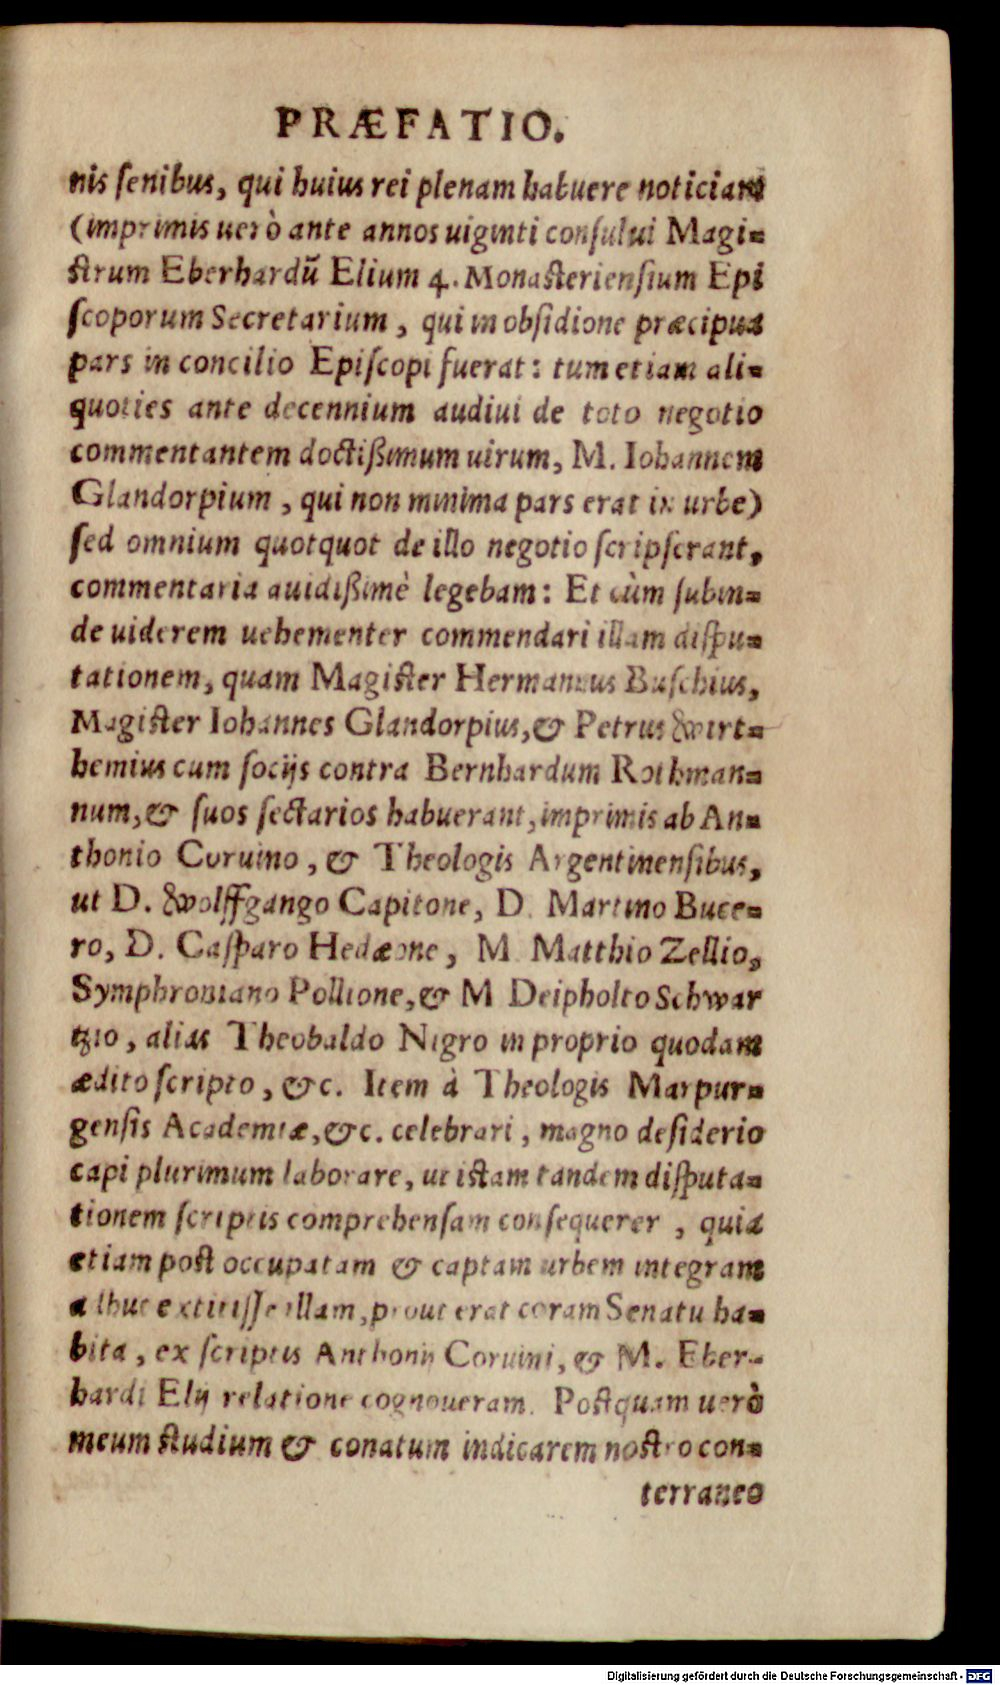 PRÆFATIO.
nis ſenibus, qui huius rei plenam habuere noticiam
(imprimis uerò ante annos uiginti conſului Magi=
ſtrum Eberhardū Elium 4. Monaſterienſium Epi
ſcoporum Secretarium, qui in obſidione præcipua
pars in concilio Epiſcopi fuerat: tum etiam ali=
quoties ante decennium audiui de toto negotio
commentantem doctiſſimum uirum, M. Iohannem
Glandorpium, qui non minima pars erat in urbe)
ſed omnium quotquot de illo negotio ſcripſerant,
commentaria auidiſſimè legebam: Et cùm ſubin=
de uiderem uehementer commendari illam diſpu=
tationem, quam Magiſter Hermannus Buſchius,
Magiſter Iohannes Glandorpius, & Petrus Wirt=
hemius cum ſocijs contra Bernhardum Rothman=
num, & ſuos ſectarios habuerant, imprimis ab An=
thonio Coruino, & Theologis Argentinenſibus,
ut D. Wolffgango Capitone, D. Martino Buce=
ro, D. Caſparo Hedæone, M. Matthio Zellio,
Symphroniano Pollione, & M Deipholto Schwar
tzio, alias Theobaldo Nigro in proprio quodam
ædito ſcripto, &c. Item à Theologis Marpur=
genſis Academiæ, &c. celebrari, magno deſiderio
capi plurimum laborare, ut iſtam tandem diſputa=
tionem ſcriptis comprehenſam conſequerer, quia
etiam poſt occupatam & captam urbem integram
adhuc extitiſſe illam, prout erat coram Senatu ha=
bita, ex ſcriptis Anthonij Coruini, & M. Eber=
hardi Elij relatione cognoueram. Poſtquam uerò
meum ſtudium & conatum indicarem noſtro con=
terraneo
Digitalisierung gefördert durch die Deutsche Forschungsgemeinschaft - DFG